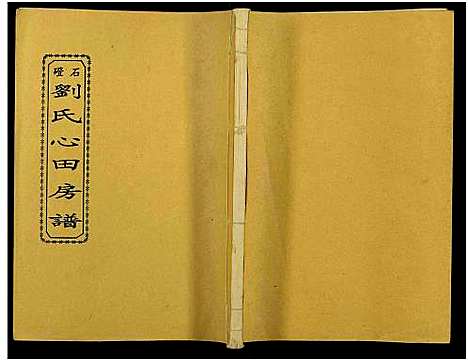 石磴
劉氏心田房譜